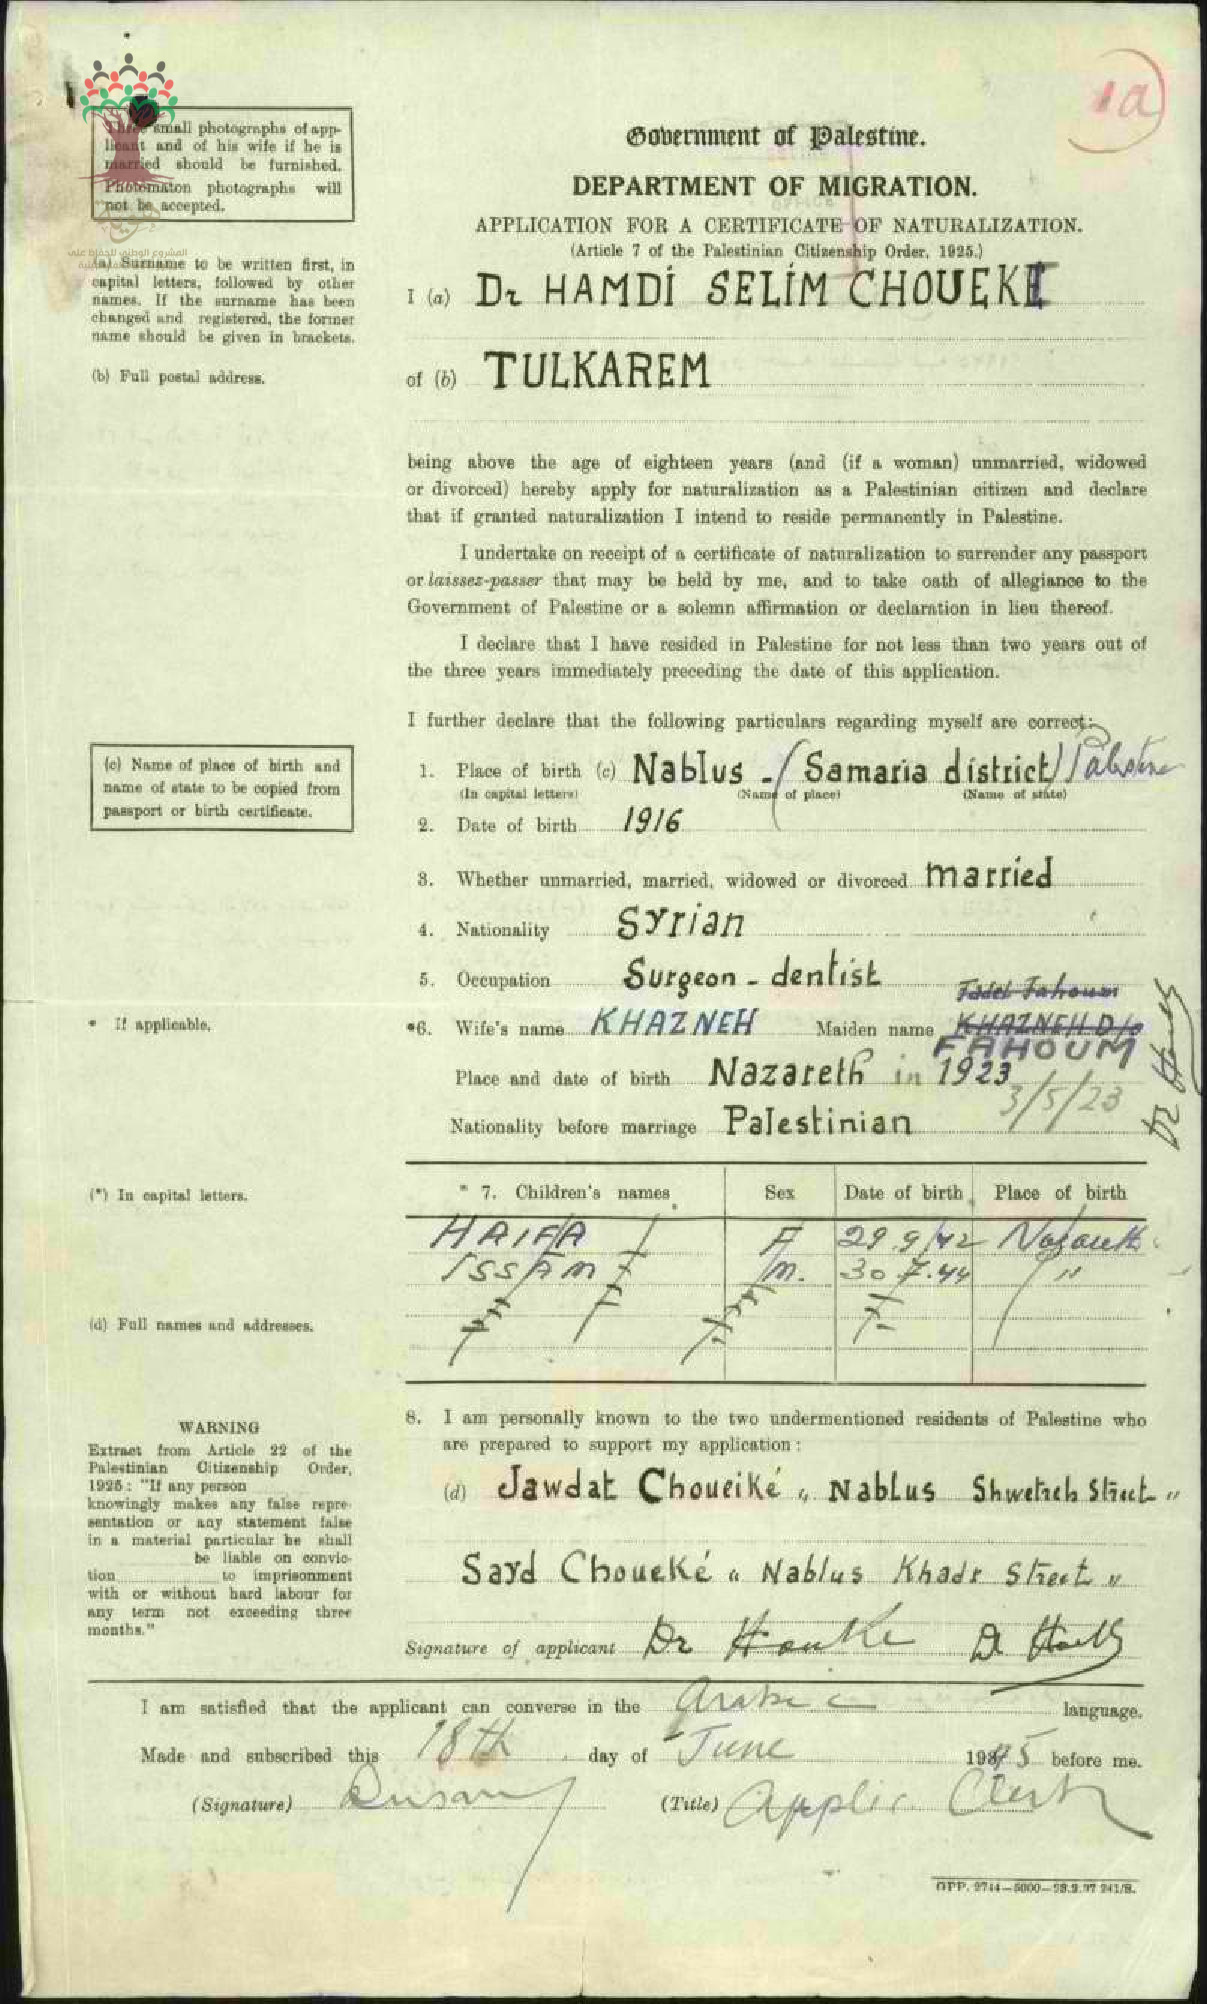 1a
Three small photographs of app-
licant and of his wife if he is
married should be furnished.
Photomaton photographs will
not be accepted.
Government of Palestine.
DEPARTMENT OF MIGRATION.
APPLICATION FOR A CERTIFICATE OF NATURALIZATION.
(Article 7 of the Palestinian Citizenship Order, 1925.)
(a) Surname to be written first, in
capital letters, followed by other
names. If the surname has been
changed and registered, the former
name should be given in brackets.
I (a) Dr HAMDI SELIM CHOUEKE
(b) Full postal address.
of (b) TULKAREM
being above the age of eighteen years (and (if a woman) unmarried, widowed
or divorced) hereby apply for naturalization as a Palestinian citizen and declare
that if granted naturalization I intend to reside permanently in Palestine.
I undertake on receipt of a certificate of naturalization to surrender any passport
or laissez-passer that may be held by me, and to take oath of allegiance to the
Government of Palestine or a solemn affirmation or declaration in lieu thereof.
I declare that I have resided in Palestine for not less than two years out of
the three years immediately preceding the date of this application.
I further declare that the following particulars regarding myself are correct:-
(c) Name of place of birth and
name of state to be copied from
passport or birth certificate.
1. Place of birth (c) Nablus - (Samaria district) Palestine
(In capital letters) (Name of place) (Name of state)
2. Date of birth 1916
3. Whether unmarried, married, widowed or divorced married
4. Nationality Syrian
5. Occupation Surgeon - dentist
Fadel Fahoum
* If applicable.
*6. Wife's name KHAZNEH Maiden name KHAZNEH D/o
FAHOUM
Place and date of birth Nazareth in 1923
3/5/23
Nationality before marriage Palestinian
(*) In capital letters.
* 7. Children's names Sex Date of birth Place of birth
HAIFA F 29.9/42 Nazareth
ISSAM m. 30.7.44 "
(d) Full names and addresses.
8. I am personally known to the two undermentioned residents of Palestine who
are prepared to support my application:
(d) Jawdat Choueiké " Nablus Shwetreh Street "
Sayd Choueké " Nablus Khadr Street "
Signature of applicant Dr
WARNING
Extract from Article 22 of the
Palestinian Citizenship Order,
1925: "If any person
knowingly makes any false repre-
sentation or any statement false
in a material particular he shall
be liable on convic-
tion to imprisonment
with or without hard labour for
any term not exceeding three
months."
I am satisfied that the applicant can converse in the Arabic language.
Made and subscribed this 18th day of June 1945 before me.
(Signature) (Title) Applic. Clerk
GPP. 9744—5000—28.9.37 241/S.